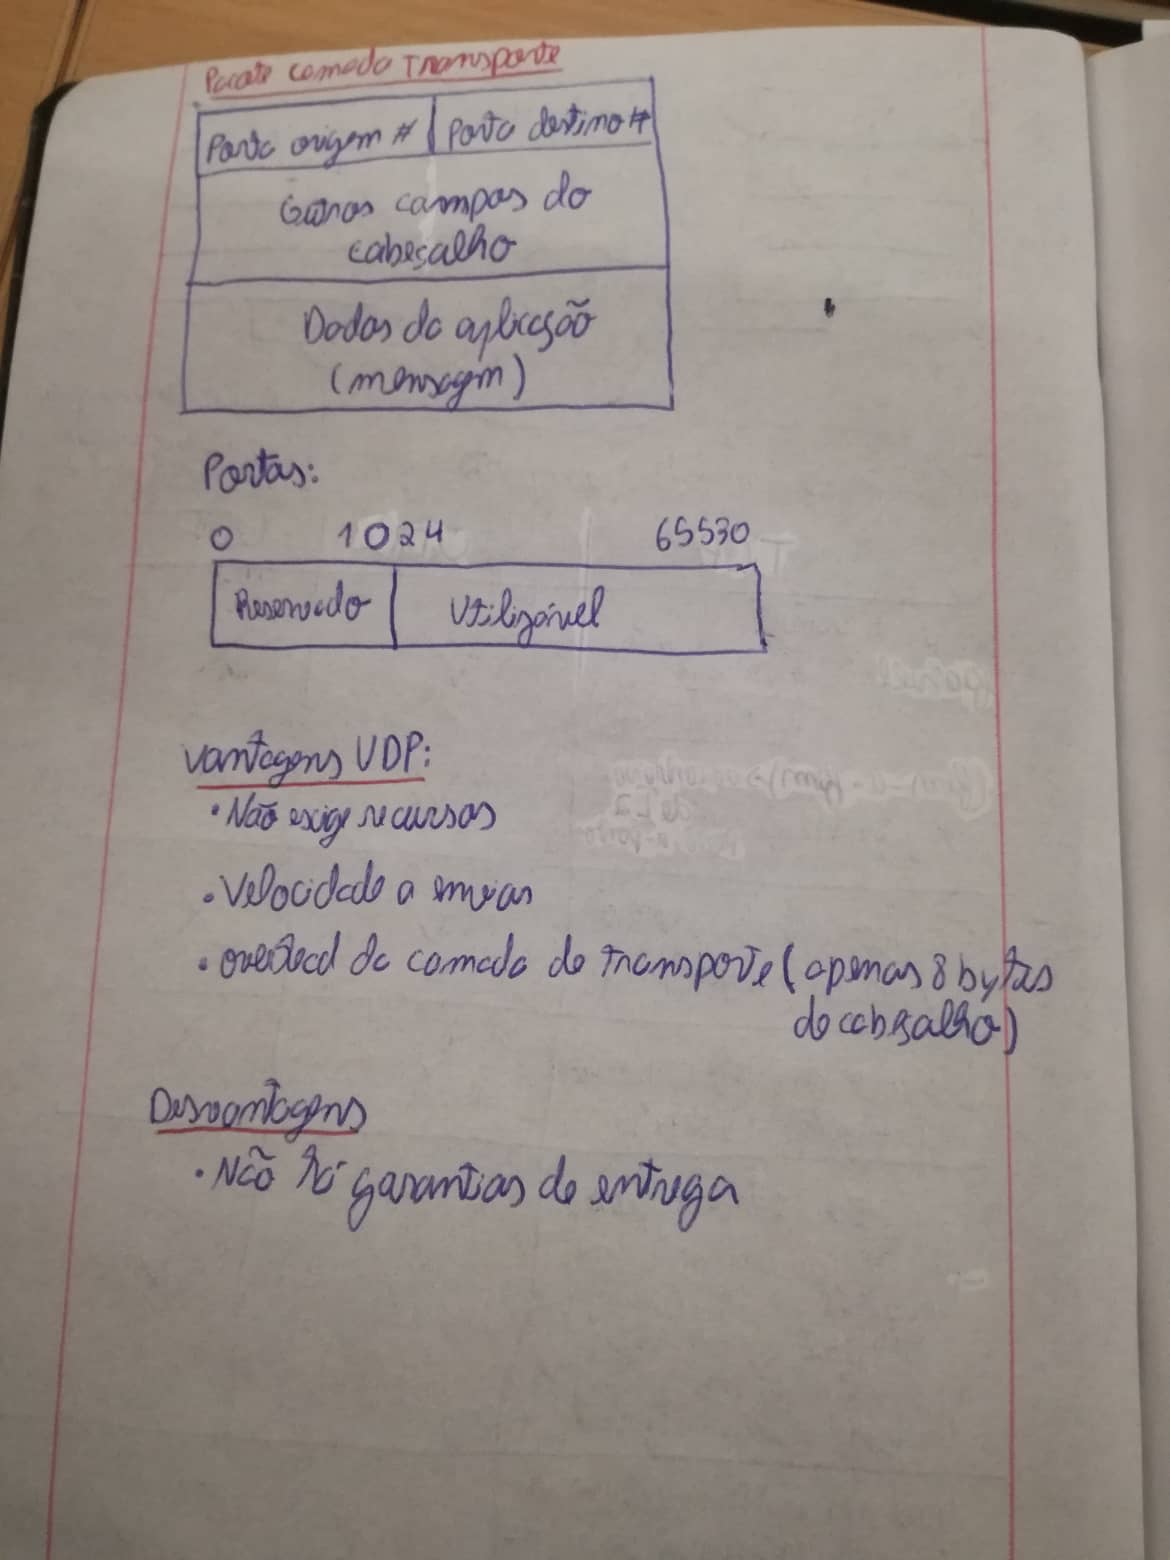 Pacote camada Transporte
Porta origem # Porta destino #
Outros campos do
cabeçalho
Dados da aplicação
(mensagem)
Portas:
0 1024 65530
Reservado Utilizável
Vantagens UDP:
• Não exige recursos
• Velocidade a enviar
• overhead da camada de transporte (apenas 8 bytes
de cabeçalho)
Desvantagens
• Não há garantias de entrega